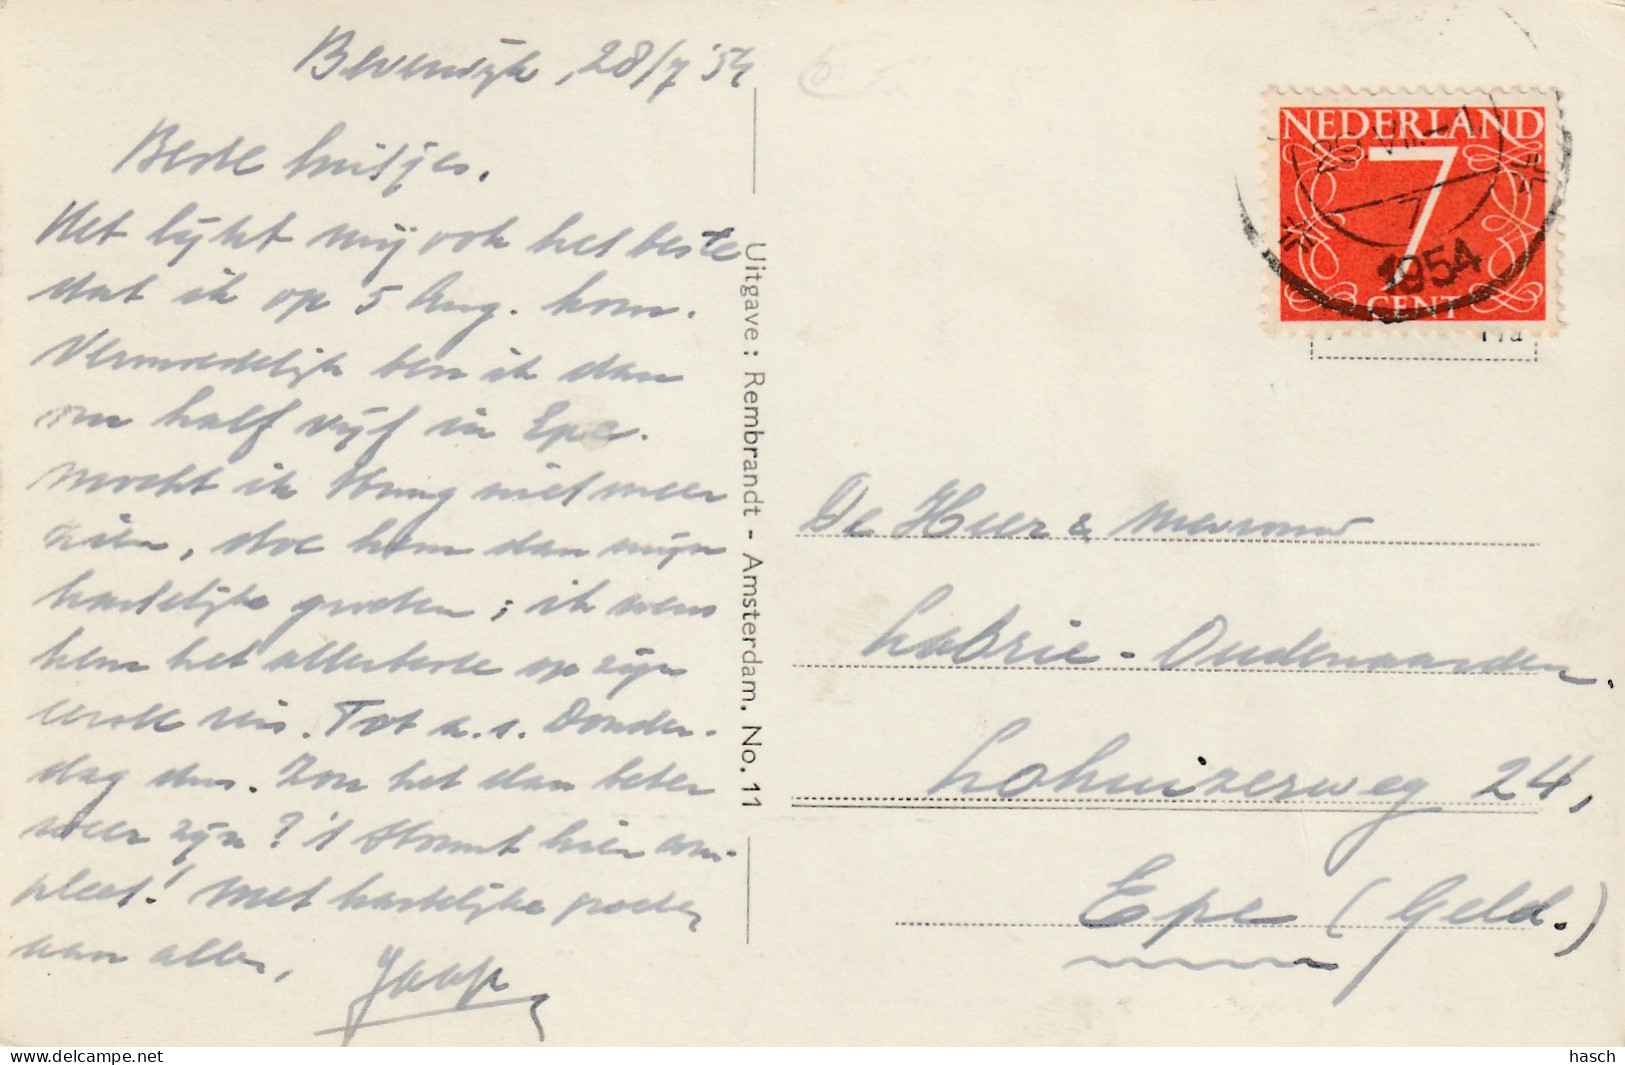 Beverwijk, 28/7 '54
Beste luitjes.
Het lijkt mij ook het beste
dat ik op 5 Aug. kom.
Vermoedelijk ben ik dan
om half vijf in Epe.
Mocht ik niet meer
zien, doe hem dan mijn
hartelijke groeten; ik wens
hem het allerbeste op zijn
eerste reis. Tot a.s. Donder-
dag dus. Zou het dan beter
weer zijn? 't Stormt hier com-
pleet! Met hartelijke groeten
aan allen,
Jaap
Uitgave: Rembrandt - Amsterdam. No. 11
NEDERLAND
7
CENT
VII
7
1954
De Heer & Mevrouw
Labrie - Oudenaarden.
Lohuizerweg 24,
Epe (Geld.)
hasch
www.delcampe.net